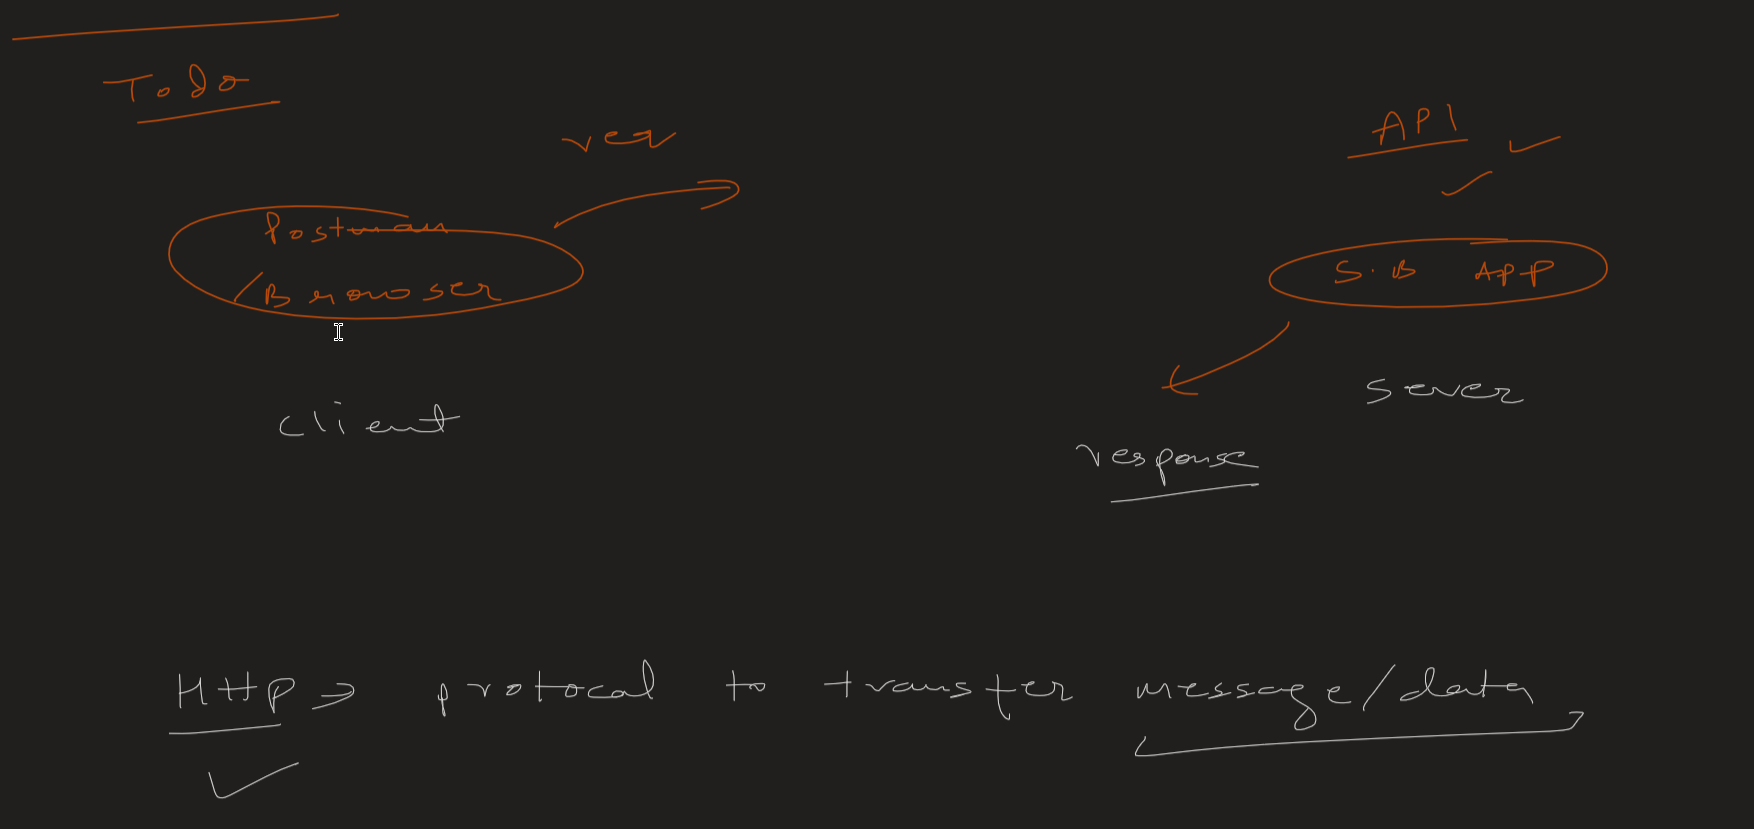 Todo
req
API
Postman
/Browser
S.B APP
client
sever
response
HTTP → protocal to transfer message/data